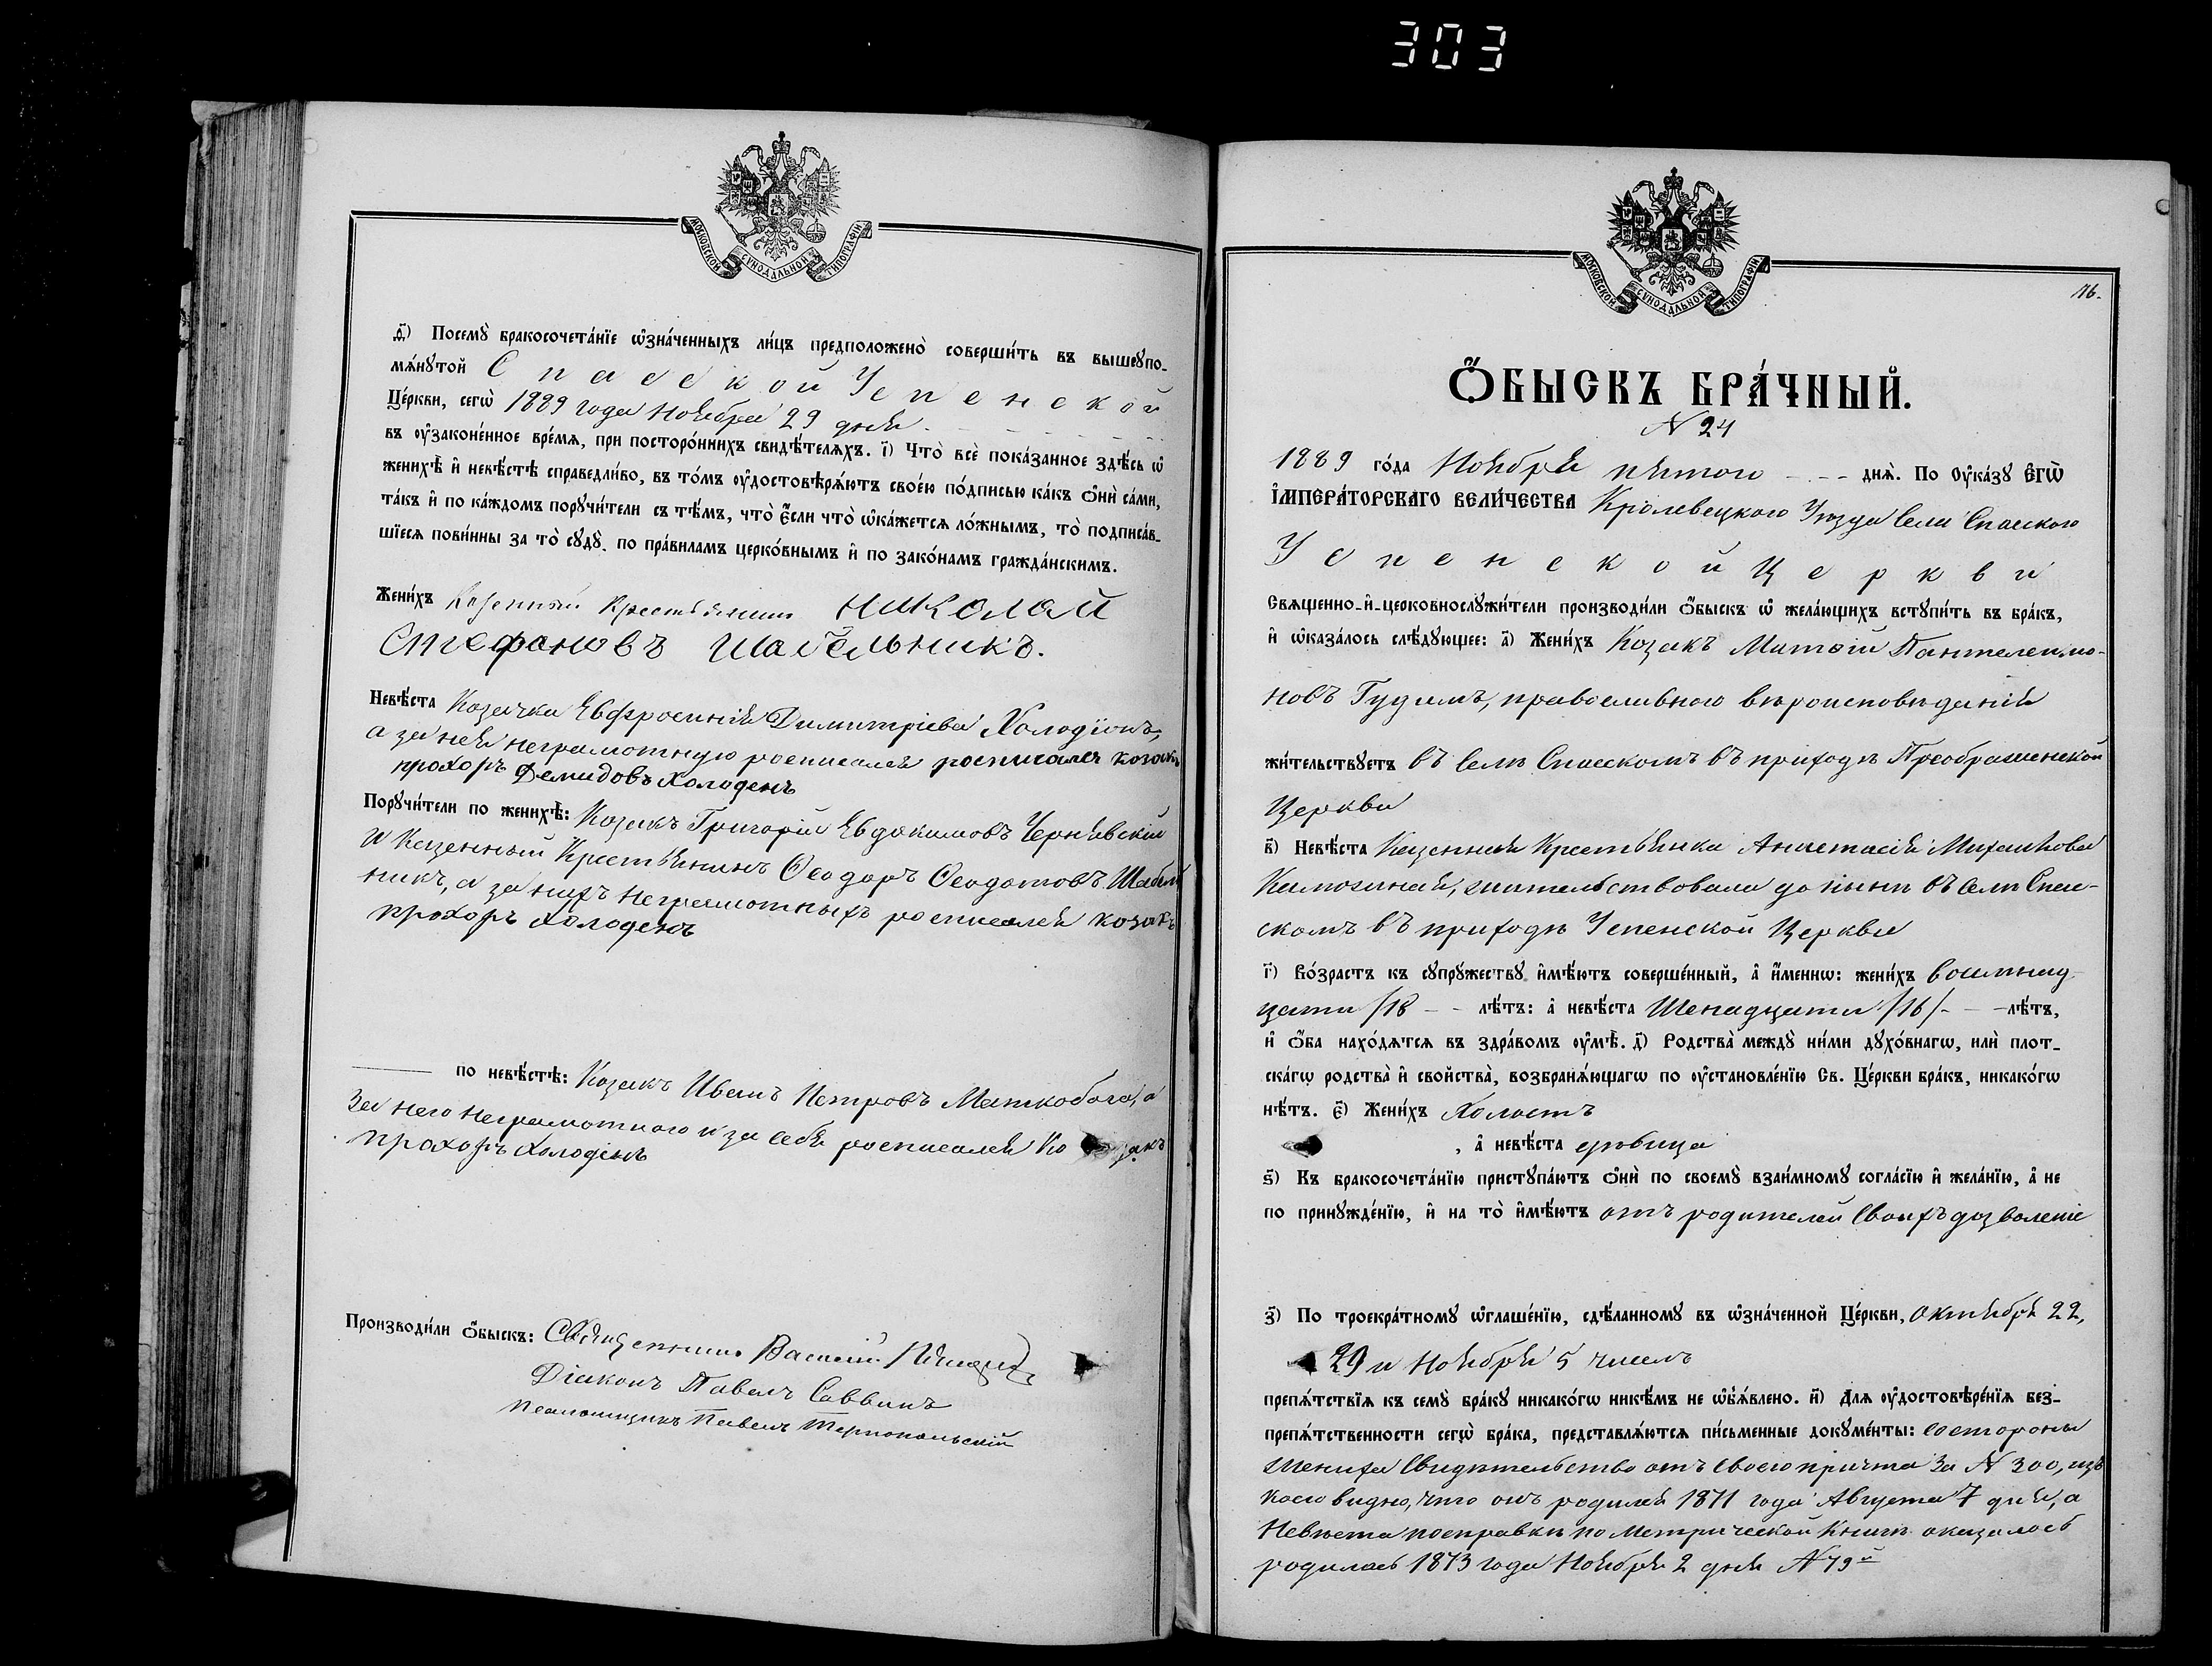 303
МОСКОВСКОЙ СѴНОДАЛЬНОЙ ТИПОГРАФІИ
д҃) Посемꙋ̀ бракосочета́нїе ѡ҆зна́ченныхъ ли́цъ предположено̀ соверши́ть въ вышеꙋпо-
мѧ́нꙋтой Спасской Успенской
Це́ркви, сегѡ̀ 1889 года Ноября 29 дня.
въ ᲂу҆зако́ненное вре́мѧ, при посторо́ннихъ свидѣ́телѧхъ. і҃) Что̀ всѐ пока́занное здѣ́сь ѡ҆
женихѣ̀ и҆ невѣ́стѣ справедли́во, въ то́мъ ᲂу҆достовѣрѧ́ютъ свое́ю по́дписью ка́къ ѻ҆нѝ са́ми,
та́къ и҆ по ка́ждомъ порꙋчи́тели съ тѣ́мъ, что̀ є҆́сли что̀ ѡ҆ка́жетсѧ ло́жнымъ, то̀ подписа́в-
шїесѧ пови́нны за то̀ сꙋдꙋ̀ по пра́виламъ церко́внымъ и҆ по зако́намъ гражда́нскимъ.
Жени́хъ Казенный Крестьянин Николай
Стефановъ Шабельникъ.
Невѣ́ста Козачка Евфросинія Димитріева Холодіонъ,
а за нея неграмотную росписался росписался козакъ
прохоръ Демидовъ Холоденъ
Порꙋчи́тели по женихѣ̀: Козакъ Григорій Евдокимовъ Чернявскій
и Казенный Крестьянинъ Ѳеодоръ Ѳеодотовъ Шабель
никъ, а за нихъ неграмотныхъ росписался козакъ
прохоръ Холоденъ
по невѣ́стѣ: Козакъ Иванъ Петровъ Маткобога, а
за него неграмотного и за себя росписался Козакъ
прохоръ Холодєнъ
Производи́ли ѻ҆́быскъ: Священникъ Василій
Діаконъ Павелъ Саввинъ
Псаломщикъ Павелъ Тернопольскій
МОСКОВСКОЙ СѴНОДАЛЬНОЙ ТИПОГРАФІИ
116.
Ѻ҆́БЫСКЪ БРА́ЧНЫЙ.
N 24
1889 го́да Ноября пятого днѧ̀. По Оу҆ка́зꙋ Є҆ГѠ̀
І҆МПЕРА́ТОРСКАГО ВЕЛИ́ЧЕСТВА Кролевецкого Уѣзда Села Спасского
Успенской Церкви
Свѧщенно-и҆-церковнослꙋжи́тели производи́ли ѻ҆́быскъ ѡ҆ жела́ющихъ встꙋпи́ть въ бра́къ,
и҆ ѡ҆каза́лось слѣ́дꙋющее: а҃) Жени́хъ Козакъ Матѳій Пантелеимо-
новъ Гудимъ, православного вѣроисповѣданія
жи́тельствꙋетъ въ Селѣ Спасскомъ въ приходѣ Преображенской
Церкви
в҃) Невѣ́ста Казенная Крестьянка Анастасія Михайлова
Камозиная, жительствовала до нынѣ въ Селѣ Спас-
скомъ въ приходѣ Успенской Церкви
г҃) Во́зрастъ къ сꙋпрꙋжествꙋ и҆мѣ́ютъ соверше́нный, а҆ и҆́меннѡ: жени́хъ восымнад-
цати /18 лѣ́тъ: а҆ невѣ́ста Шенадцати /16/ лѣ́тъ,
и҆ ѻ҆́ба нахо́дѧтсѧ въ здра́вомъ ᲂу҆мѣ̀. д҃) Родства̀ междꙋ̀ ни́ми дꙋхо́внагѡ, илѝ плот-
ска́гѡ родства̀ и҆ свойства̀, возбранѧ́ющагѡ по ᲂу҆становле́нїю Св. Це́ркви бра́къ, никако́гѡ
нѣ́тъ. є҃) Жени́хъ Холостъ
, а҆ невѣ́ста дѣвица
ѕ҃) Къ бракосочета́нїю пристꙋпа́ютъ ѻ҆нѝ по своемꙋ̀ взаи́мномꙋ согла́сїю и҆ жела́нїю, а҆ не
по принꙋжде́нїю, и҆ на то̀ и҆мѣ́ютъ отъ родителей своихъ дозволеніе
з҃) По троекра́тномꙋ ѡ҆глаше́нїю, сдѣ́ланномꙋ въ ѡ҆зна́ченной Це́ркви, октября 22,
29 и Ноября 5 чиселъ
препѧ́тствїѧ къ семꙋ̀ бра́кꙋ никако́гѡ никѣ́мъ не ѡ҆б̾ѧ́влено. и҃) Для ᲂу҆достовѣре́нїѧ без-
препѧ́тственности сегѡ̀ бра́ка, представлѧ́ютсѧ пи́сьменные докꙋме́нты: со стороны
жениха Свидѣтельство отъ своего причта за N 300, изъ
коего видно, что онъ родился 1871 года Августа 7 дня, а
Невѣста посправкѣ по Метрической Книгѣ оказалось
родилась 1873 года Ноября 2 дня N 79й